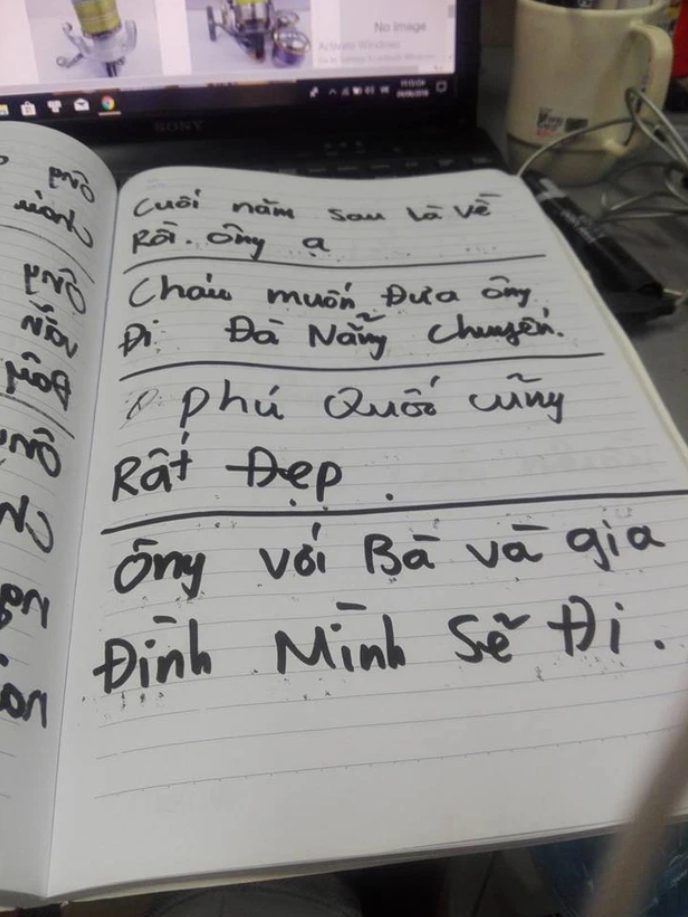 No image
Activate Windows
SONY
Cuối năm sau là về
Rồi. ông ạ
Cháu muốn Đưa ông
Đi Đà Nẵng chuyến.
Phú Quốc cũng
Rất Đẹp.
Ông với Bà và gia
Đình Mình Sẽ Đi.
Ông
Cháu
Ông
Ông